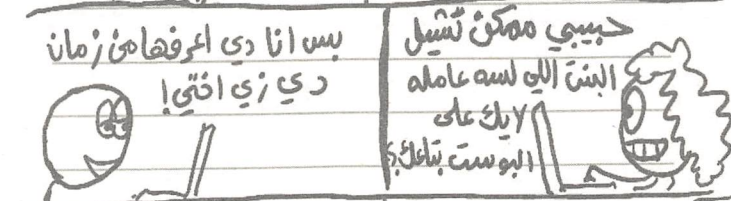 حبيبي ممكن تشيل
البنت اللي لسه عامله
لايك على
البوست بتاعك؟
بس انا دي اعرفها من زمان
دي زي اختي!